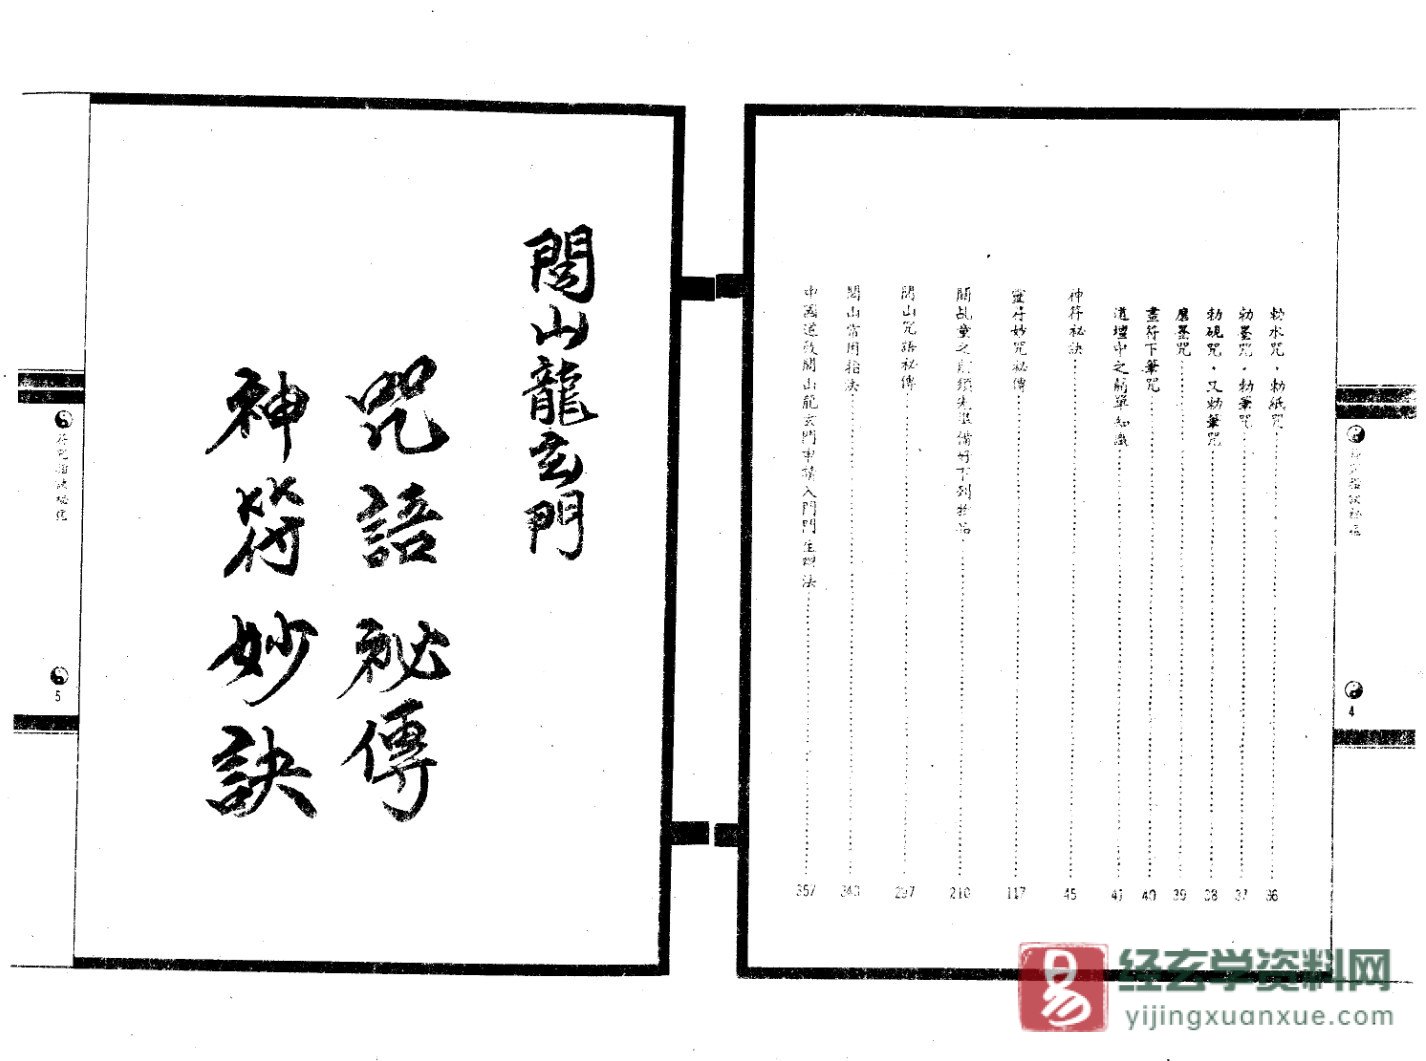 勅水咒·勅紙咒 36
勅墨咒·勅筆咒 37
勅硯咒·又勅筆咒 38
磨墨咒 39
畫符下筆咒 40
道壇中之簡單知識 41
神符秘訣 45
靈符妙咒秘傳 117
關乩童之前須先準備好下列物品 210
閭山咒語秘傳 297
閭山常用指法 343
中國道教閭山龍玄門申請入門門生辦法 357
4
閭山龍玄門
咒語秘傳
神符妙訣
符咒指訣秘傳
5
易
经玄学资料网
yijingxuanxue.com